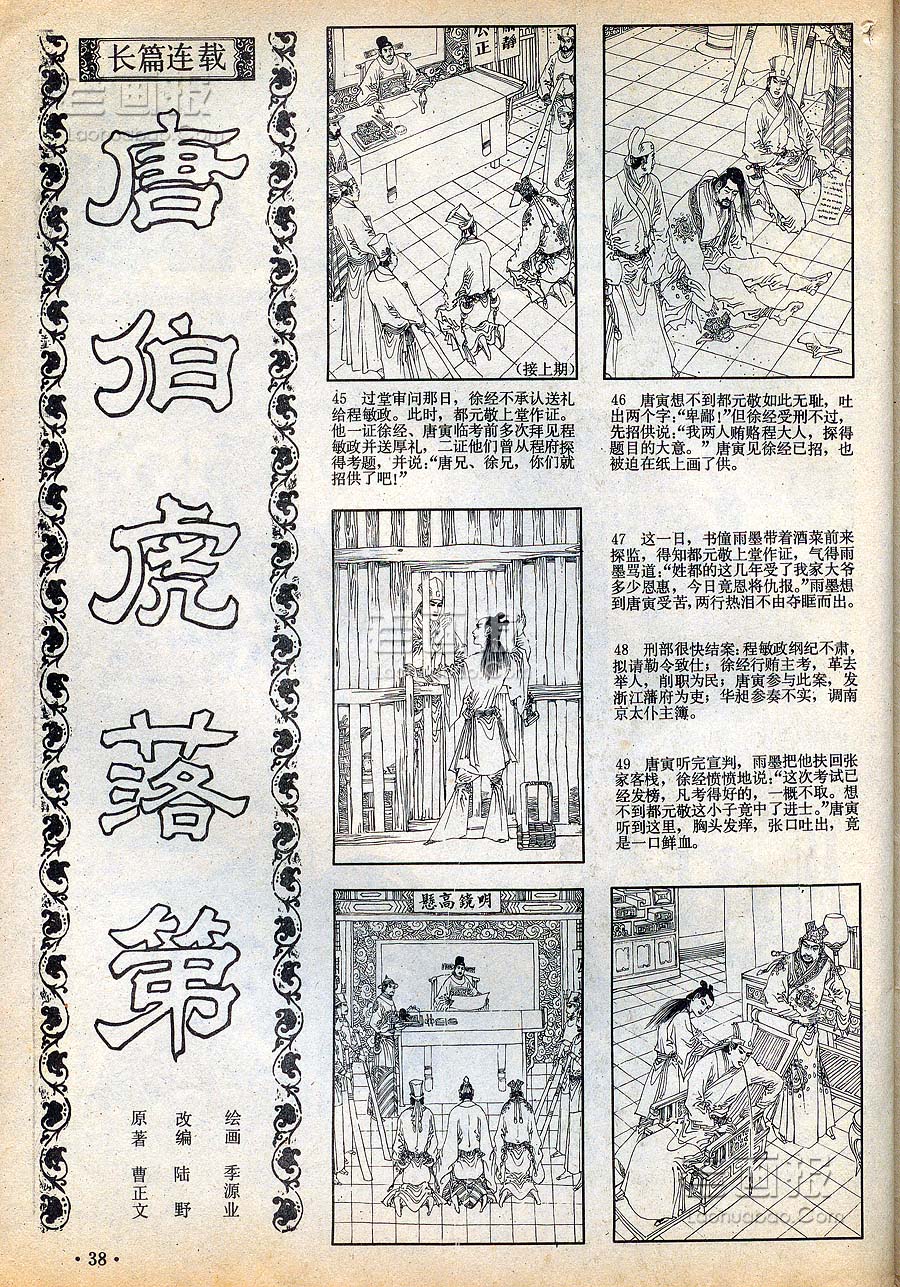 长篇连载
唐伯虎落第
绘画 季源业
改编 陆野
原著 曹正文
公正
(接上期)
45 过堂审问那日，徐经不承认送礼
给程敏政。此时，都元敬上堂作证。
他一证徐经、唐寅临考前多次拜见程
敏政并送厚礼，二证他们曾从程府探
得考题，并说：“唐兄、徐兄，你们就
招供了吧！”
46 唐寅想不到都元敬如此无耻，吐
出两个字：“卑鄙！”但徐经受刑不过，
先招供说：“我两人贿赂程大人，探得
题目的大意。”唐寅见徐经已招，也
被迫在纸上画了供。
47 这一日，书僮雨墨带着酒菜前来
探监，得知都元敬上堂作证，气得雨
墨骂道：“姓都的这几年受了我家大爷
多少恩惠，今日竟恩将仇报。”雨墨想
到唐寅受苦，两行热泪不由夺眶而出。
48 刑部很快结案：程敏政纲纪不肃，
拟请勒令致仕；徐经行贿主考，革去
举人，削职为民；唐寅参与此案，发
浙江藩府为吏；华昶参奏不实，调南
京太仆主簿。
49 唐寅听完宣判，雨墨把他扶回张
家客栈，徐经愤愤地说：“这次考试已
经发榜，凡考得好的，一概不取。想
不到都元敬这小子竟中了进士。”唐寅
听到这里，胸头发痒，张口吐出，竟
是一口鲜血。
明鏡高懸
老画报
Laohuabao.Com
·38·